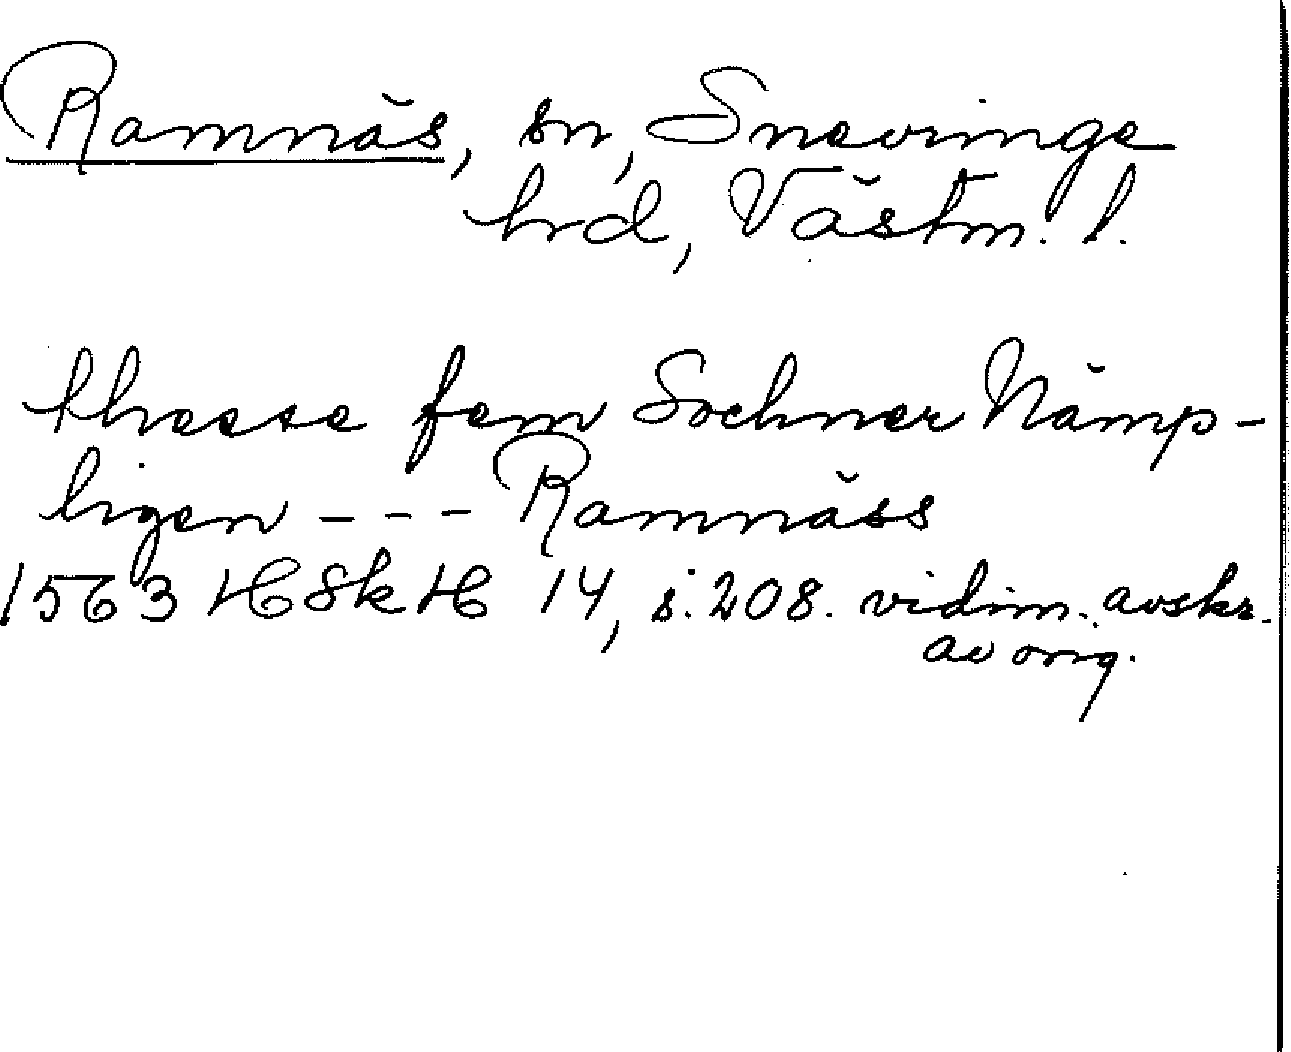 Ramnäs, sn, Snevringe
hrd, Västm. l.
thesse fem Sochner Nämp-
ligen - - - Ramnäss
1563 HSkH 14, s. 208. vidim. avskr.
av orig.